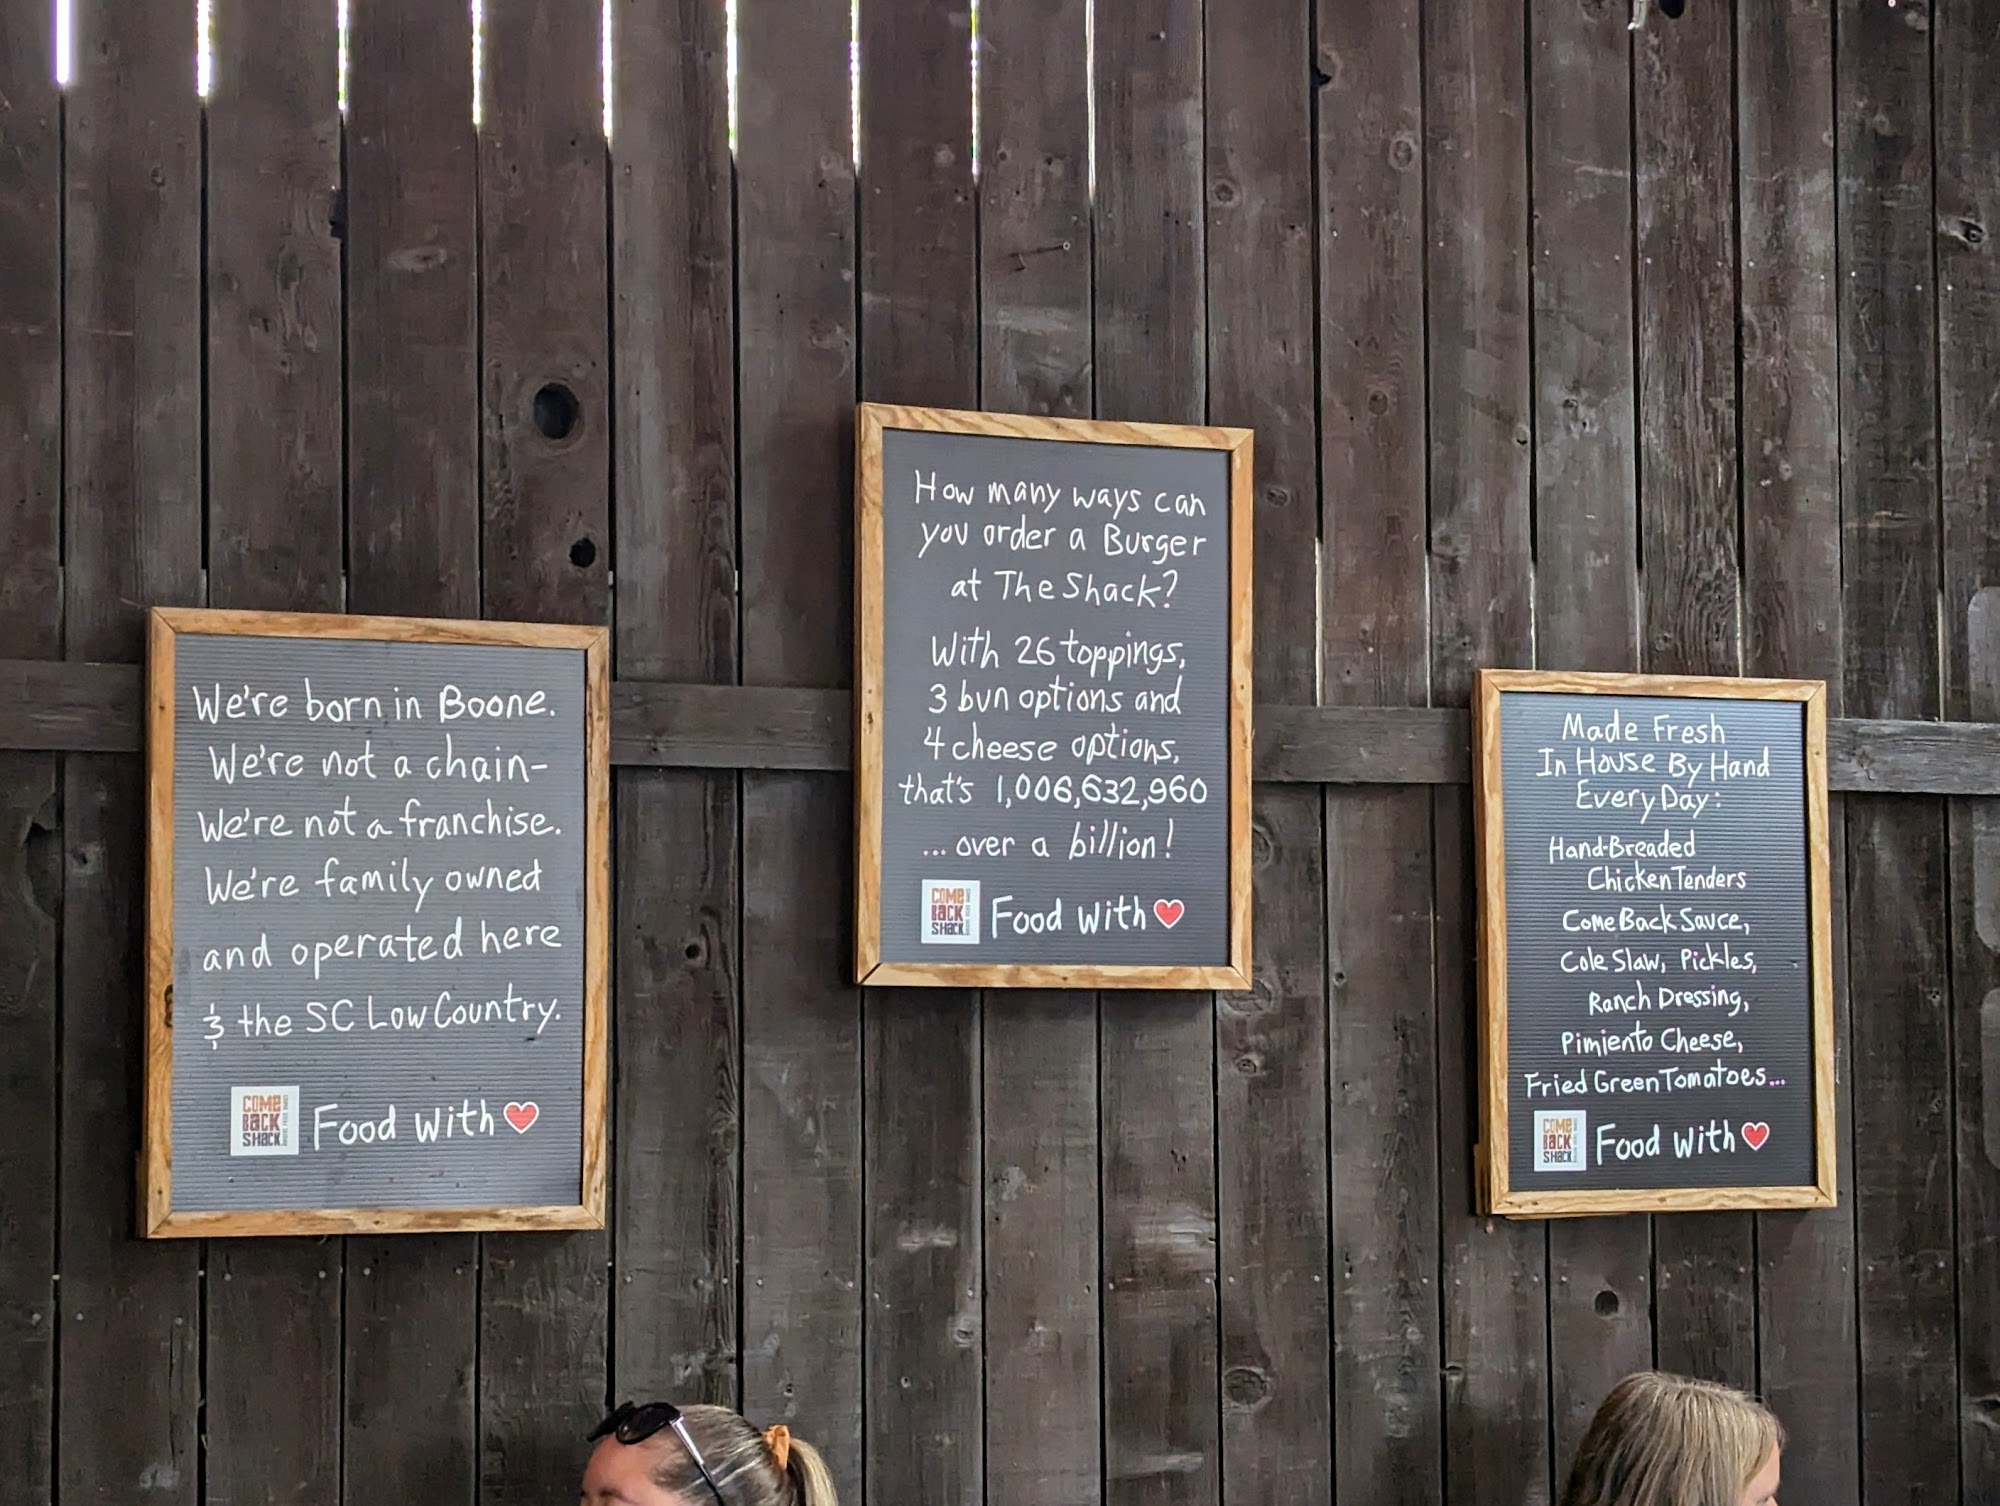 We're born in Boone.
We're not a chain-
We're not a franchise.
We're family owned
and operated here
& the SC Low Country.
COME
BACK
SHACK
Food with
How many ways can
you order a Burger
at The Shack?
With 26 toppings,
3 bun options and
4 cheese options,
that's 1,006,632,960
... over a billion!
COME
BACK
SHACK
Food with
Made Fresh
In House By Hand
Every Day:
Hand-Breaded
Chicken Tenders
ComeBack Sauce,
Cole Slaw, Pickles,
Ranch Dressing,
Pimiento Cheese,
Fried Green Tomatoes...
COME
BACK
SHACK
Food with